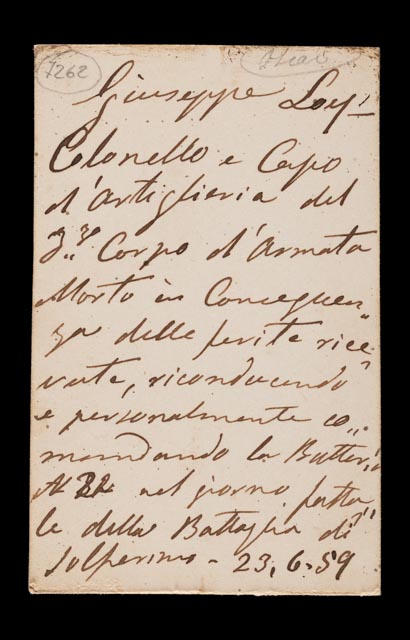 7262
Giuseppe Loy
Colonello e Capo
d'Artiglieria del
3.zo Corpo d'Armata
Morto in Conseguen„
za delle ferite rice„
vute, riconducendo
e personalmente co„
mandando la Batteria
nel giorno fatta„
le della Battaglia di
Solferino - 23, 6. 59